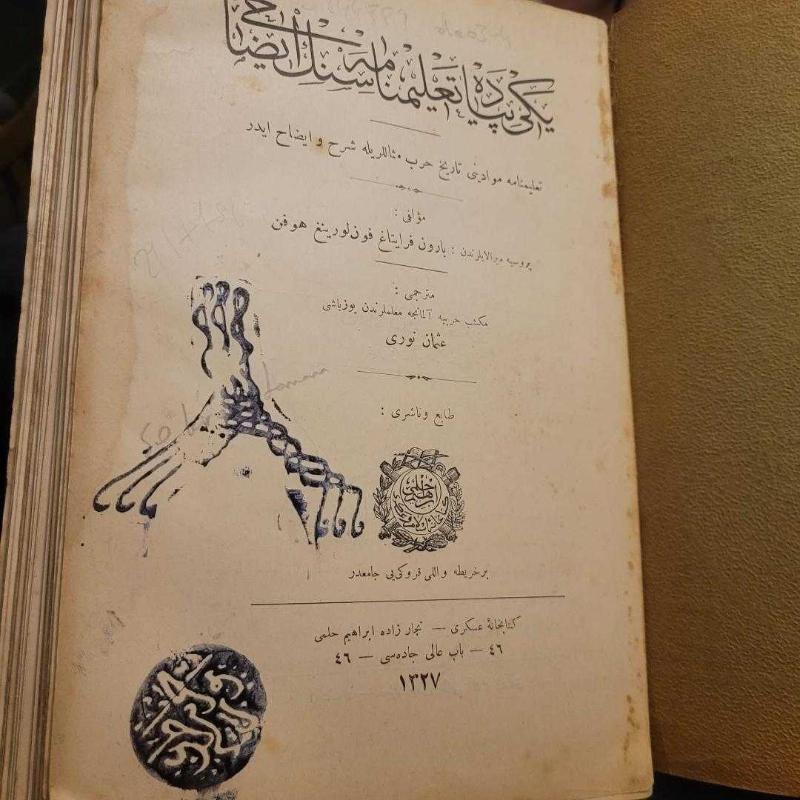 یکی پیاده تعلیمنامه‌سنك ایضاحی
تعلیمنامه موادینی تاریخ حرب مثاللریله شرح و ایضاح ایدر
مؤلفی :
پروسیه میرالایلرندن : بارون فرایتاغ فون لورینغ هوفن
مترجمی :
مکتب حربیه آلمانجه معلملرندن یوزباشی
عثمان نوری
طابع وناشری :
برخریطه و اللی قروکی‌یی جامعدر
کتابخانهٔ عسکری — تجار زاده ابراهیم حلمی
٤٦ — باب عالی جاده‌سی — ٤٦
١٣٢٧